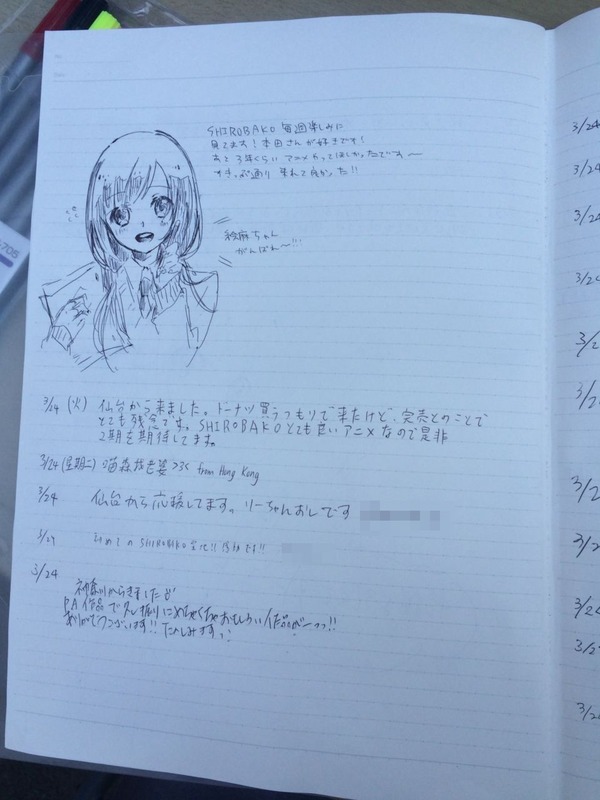 SHIROBAKO 毎週楽しみに
見てます！本田さんが好きです！
あと3年くらいアニメやってほしかったです〜
通り 来れて良かった!!
絵麻ちゃん
がんばれ〜!!!
3/24 (火) 仙台から来ました。ドーナツ買うつもりで来たけど、完売とのことで
とても残念です。SHIROBAKOとても良いアニメなので是非
2期を期待してます。
3/24 (星期二) 喵森我老婆 from Hong Kong
3/24 仙台から応援してます。りーちゃんおしです
3/24 SHIROBAKO 聖地!! 感動です!!
3/24
神奈川からきました
P.A作品で久し振りにめちゃくちゃおもしろい作品が〜っっ!!
ありがとうございます!! たのしみますっ
3/24
3/24
3/24
3/24
3/2
3/2
3/24
3/24
3/24
3/2
3/24